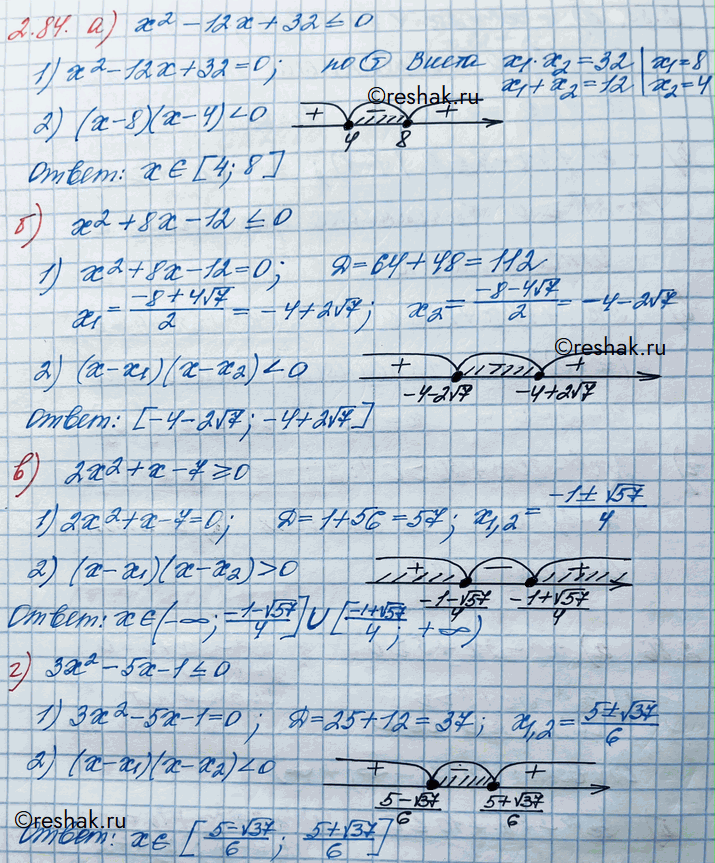 2.84. а) x² - 12x + 32 ≤ 0
1) x² - 12x + 32 = 0; по Ⓣ Виета x₁·x₂ = 32 | x₁ = 8
x₁ + x₂ = 12 | x₂ = 4
©reshak.ru
2) (x-8)(x-4) < 0 + - +
4 8
Ответ: x ∈ [4; 8]
б) x² + 8x - 12 ≤ 0
1) x² + 8x - 12 = 0; Д = 64 + 48 = 112
x₁ = (-8+4√7)/2 = -4+2√7; x₂ = (-8-4√7)/2 = -4-2√7
©reshak.ru
2) (x-x₁)(x-x₂) < 0 + +
-4-2√7 -4+2√7
Ответ: [-4-2√7; -4+2√7]
в) 2x² + x - 7 ≥ 0
1) 2x² + x - 7 = 0; Д = 1 + 56 = 57; x₁,₂ = (-1±√57)/4
2) (x-x₁)(x-x₂) > 0 + - +
(-1-√57)/4 (-1+√57)/4
Ответ: x ∈ (-∞; (-1-√57)/4] ∪ [(-1+√57)/4; +∞)
г) 3x² - 5x - 1 ≤ 0
1) 3x² - 5x - 1 = 0; Д = 25 + 12 = 37; x₁,₂ = (5±√37)/6
2) (x-x₁)(x-x₂) < 0 + - +
(5-√37)/6 (5+√37)/6
©reshak.ru
Ответ: x ∈ [(5-√37)/6; (5+√37)/6]